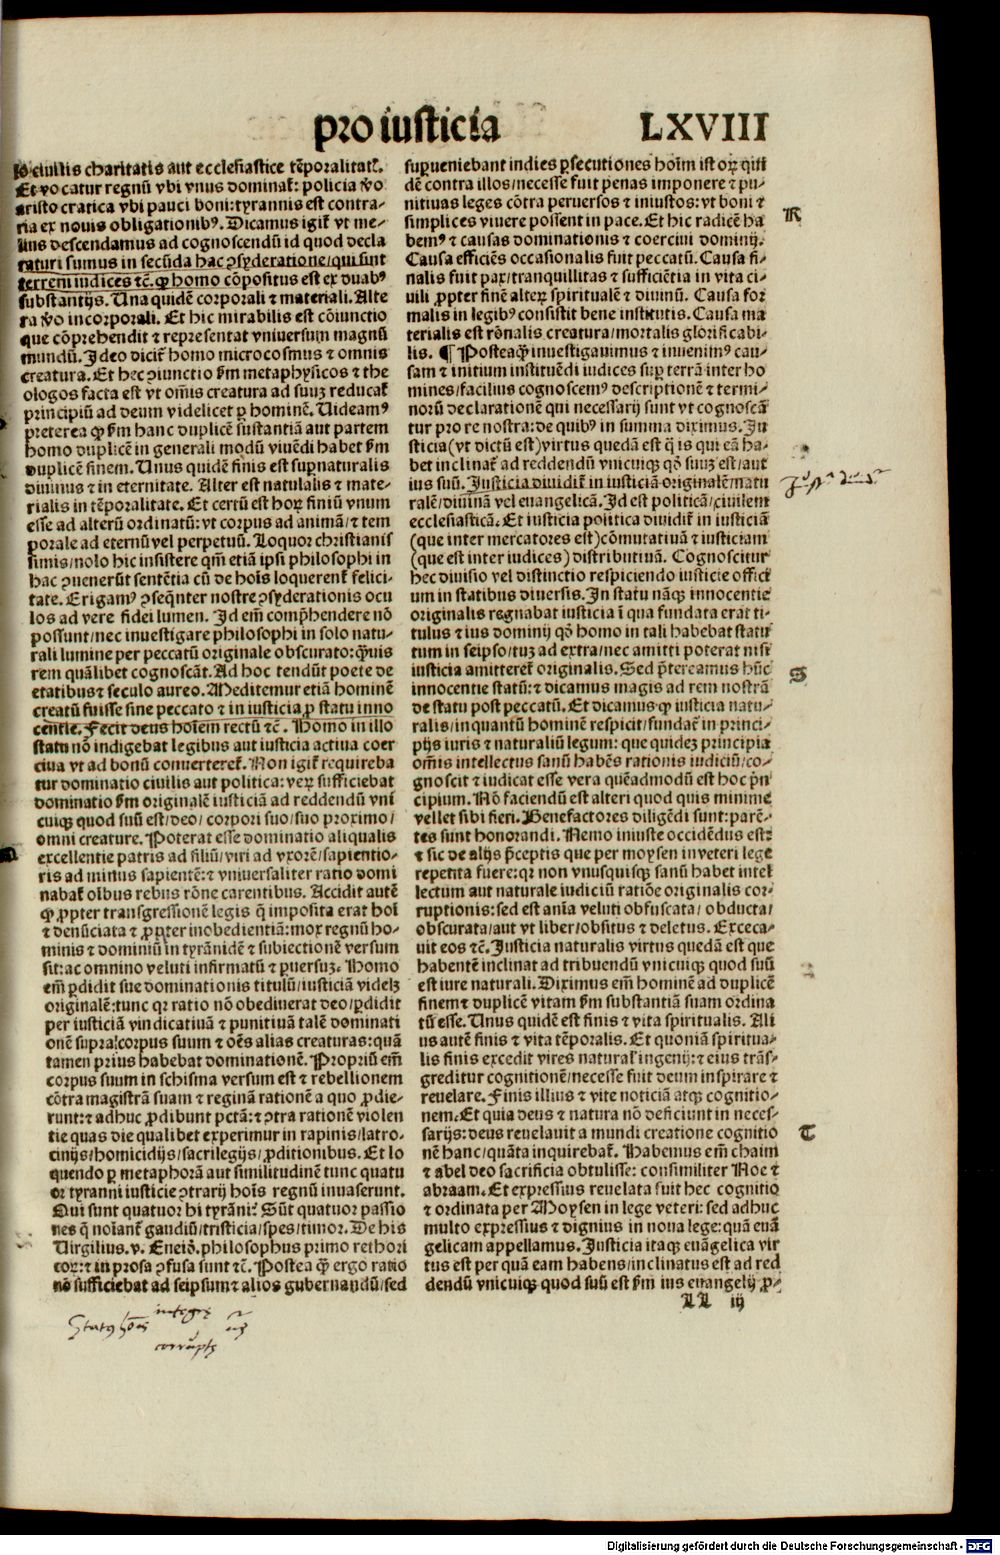 pro iusticia LXVIII
io ciuilis charitatis aut ecclesiastice tēporalitatꝭ.
Et vo catur regnū vbi vnus dominatꝭ: policia v̄o
aristo cratica vbi pauci boni: tyrannis est contra-
ria ex nouis obligationibꝰ. Dicamus igitꝭ vt me-
lius descendamus ad cognoscendū id quod decla
raturi sumus in secūda hac ꝯsyderatione/qui sunt
terreni iudices tē. ꝙ homo cōpositus est ex duabꝰ
substantijs. Una quidē corporali ⁊ materiali. Alte
ra v̄o incorporali. Et hic mirabilis est cōiunctio
que cōprehendit ⁊ representat vniuersum magnū
mundū. Ideo dicitꝭ homo microcosmus ⁊ omnis
creatura. Et hec ꝯiunctio s̄m metaphysicos ⁊ the
ologos facta est vt om̄is creatura ad suuꝫ reducatꝭ
principiū ad deum videlicet ꝑ hominē. Uideamꝰ
preterea ꝙ s̄m hanc duplicē sustantiā aut partem
homo duplicē in generali modū viuēdi habet s̄m
duplicē finem. Unus quidē finis est supnaturalis
diuinus ⁊ in eternitate. Alter est natulalis ⁊ mate-
rialis in tēporalitate. Et certū est hoꝝ finiū vnum
esse ad alterū ordinatū: vt corpus ad animā/⁊ tem
porale ad eternū vel perpetuū. Loquor christianis
simis/nolo hic insistere qm̄ etiā ipsi philosophi in
hac ꝯuenerūt sentētia cū de hoīs loquerentꝭ felici-
tate. Erigamꝰ ꝯseqn̄ter nostre ꝯsyderationis ocu
los ad vere fidei lumen. Id em̄ comp̄hendere nō
possunt/nec inuestigare philosophi in solo natu-
rali lumine per peccatū originale obscurato: ꝙuis
rem quālibet cognoscāt. Ad hoc tendūt poete de
etatibus ⁊ seculo aureo. Meditemur etiā hominē
creatū fuisse sine peccato ⁊ in iusticia ꝓ statu inno
centie. Fecit deus hoīem rectū ⁊c. Homo in illo
statu nō indigebat legibus aut iusticia actiua coer
ciua vt ad bonū conuerteretꝭ. Non igitꝭ requireba
tur dominatio ciuilis aut politica: veꝝ sufficiebat
dominatio s̄m originalē iusticiā ad reddendū vni
cuiqꝫ quod suū est/deo/ corpori suo/suo proximo/
omni creature. Poterat esse dominatio aliqualis
excellentie patris ad filiū/viri ad vxorē/sapientio-
ris ad minus sapientē: ⁊ vniuersaliter ratio domi
nabatꝭ oībus rebus rōne carentibus. Accidit autē
ꝙ ꝓpter transgressionē legis q̄ imposita erat hoī
⁊ denūciata ⁊ ꝓpter inobedientiā: mox regnū ho-
minis ⁊ dominiū in tyrānidē ⁊ subiectionē versum
sit: ac omnino veluti infirmatū ⁊ ꝑuersuꝫ. Homo
em̄ ꝑdidit sue dominationis titulū/iusticiā videlꝫ
originalē: tunc qꝛ ratio nō obediuerat deo/ꝑdidit
per iusticiā vindicatiuā ⁊ punitiuā talē dominati
onē supra: corpus suum ⁊ oēs alias creaturas: quā
tamen prius habebat dominationē. Propriū em̄
corpus suum in schisma versum est ⁊ rebellionem
cōtra magistrā suam ⁊ reginā rationē a quo ꝓdie-
runt: ⁊ adhuc ꝓdibunt pctā: ⁊ ꝯtra rationē violen
tie quas die qualibet experimur in rapinis/latro-
cinijs/homicidijs/sacrilegijs/ꝓditionibus. Et lo
quendo ꝑ metaphorā aut similitudinē tunc quatu
or tyranni iusticie ꝯtrarij hoīs regnū inuaserunt.
Qui sunt quatuor hi tyrāni? Sūt quatuor passio
nes q̄ noīant̄ gaudiū/tristicia/spes/timor. De his
Uirgilius. v. Eneid. philosophus primo rethori
coꝝ: ⁊ in prosa ꝯfusa sunt ⁊c. Postea ꝙ ergo ratio
nō sufficiebat ad seipsum ⁊ alios gubernandū/sed
supueniebant indies ꝑsecutiones hoīm ist oꝝ qui
dē contra illos/necesse fuit penas imponere ⁊ pu-
nitiuas leges cōtra peruersos ⁊ iniustos: vt boni ⁊
simplices viuere possent in pace. Et hic radicē ha
bemꝰ ⁊ causas dominationis ⁊ coerciui dominij.
Causa efficiēs occasionalis fuit peccatū. Causa fi-
nalis fuit pax/tranquillitas ⁊ sufficiētia in vita ci-
uili ꝓpter finē alteꝝ spiritualē ⁊ diuinū. Causa for
malis in legibꝰ consistit bene institutis. Causa ma
terialis est rōnalis creatura/mortalis glorificabi-
lis. ¶ Posteaꝙ inuestigauimus ⁊ inuenimꝰ cau-
sam ⁊ initium instituēdi iudices sup terrā inter ho
mines/facilius cognoscemꝰ descriptionē ⁊ termi-
norū declarationē qui necessarij sunt vt cognoscā
tur pro re nostra: de quibꝰ in summa diximus. Iu
sticia (vt dictū est) virtus quedā est q̄ is qui eā ha-
bet inclinatꝭ ad reddendū vnicuiqꝫ qd̄ suuꝫ est/aut
ius suū. Iusticia diuiditꝭ in iusticiā originalē/natu
ralē/diuinā vel euangelicā. Id est politicā/ciuilem
ecclesiasticā. Et iusticia politica diuiditꝭ in iusticiā
(que inter mercatores est) cōmutatiuā ⁊ iusticiam
(que est inter iudices) distributiuā. Cognoscitur
hec diuisio vel distinctio respiciendo iusticie offici
um in statibus diuersis. In statu nāqꝫ innocentie
originalis regnabat iusticia ī qua fundata erat ti-
tulus ⁊ ius dominij qd̄ homo in tali habebat statu
tum in seipso/tuꝫ ad extra/nec amitti poterat nisi
iusticia amitteretꝭ originalis. Sed p̄tereamus hūc
innocentie statū: ⁊ dicamus magis ad rem nostrā
de statu post peccatū. Et dicamus ꝙ iusticia natu-
ralis/inquantū hominē respicit/fundatꝭ in princi-
pijs iuris ⁊ naturaliū legum: que quideꝫ principia
om̄is intellectus sanū habēs rationis iudiciū/co-
gnoscit ⁊ iudicat esse vera quēadmodū est hoc p̄n
cipium. Nō faciendū est alteri quod quis minime
vellet sibi fieri. Benefactores diligēdi sunt: parē-
tes sunt honorandi. Nemo iniuste occidēdus est:
⁊ sic de alijs p̄ceptis que per moysen in veteri lege
repetita fuere: qꝛ non vnusquisqꝫ sanū habet intel
lectum aut naturale iudiciū ratiōe originalis cor-
ruptionis: sed est aīa veluti obfuscata/ obducta/
obscurata/aut vt liber/obsitus ⁊ deletus. Exceca-
uit eos ⁊c. Iusticia naturalis virtus quedā est que
habentē inclinat ad tribuendū vnicuiqꝫ quod suū
est iure naturali. Diximus em̄ hominē ad duplicē
finem ⁊ duplicē vitam s̄m substantiā suam ordina
tū esse. Unus quidē est finis ⁊ vita spiritualis. Ali
us autē finis ⁊ vita tēporalis. Et quoniā spiritua-
lis finis excedit vires naturalꝭ ingenij: ⁊ eius trās-
greditur cognitionē/necesse fuit deum inspirare ⁊
reuelare. Finis illius ⁊ vite noticiā atqꝫ cognitio-
nem. Et quia deus ⁊ natura nō deficiunt in neces-
sarijs: deus reuelauit a mundi creatione cognitio
nē hanc/quāta inquirebatꝭ. Habemus em̄ chaim
⁊ abel deo sacrificia obtulisse: consimiliter Noe ⁊
abraam. Et expressius reuelata fuit hec cognitio
⁊ ordinata per Moysen in lege veteri: sed adhuc
multo expressius ⁊ dignius in noua lege: quā euā
gelicam appellamus. Iusticia itaqꝫ euāgelica vir
tus est per quā eam habens/inclinatus est ad red
dendū vnicuiqꝫ quod suū est s̄m ius euangelij ꝓ-
R
S
T
LL iij
Status hōis
integrę
corruptę
Digitalisierung gefördert durch die Deutsche Forschungsgemeinschaft - DFG